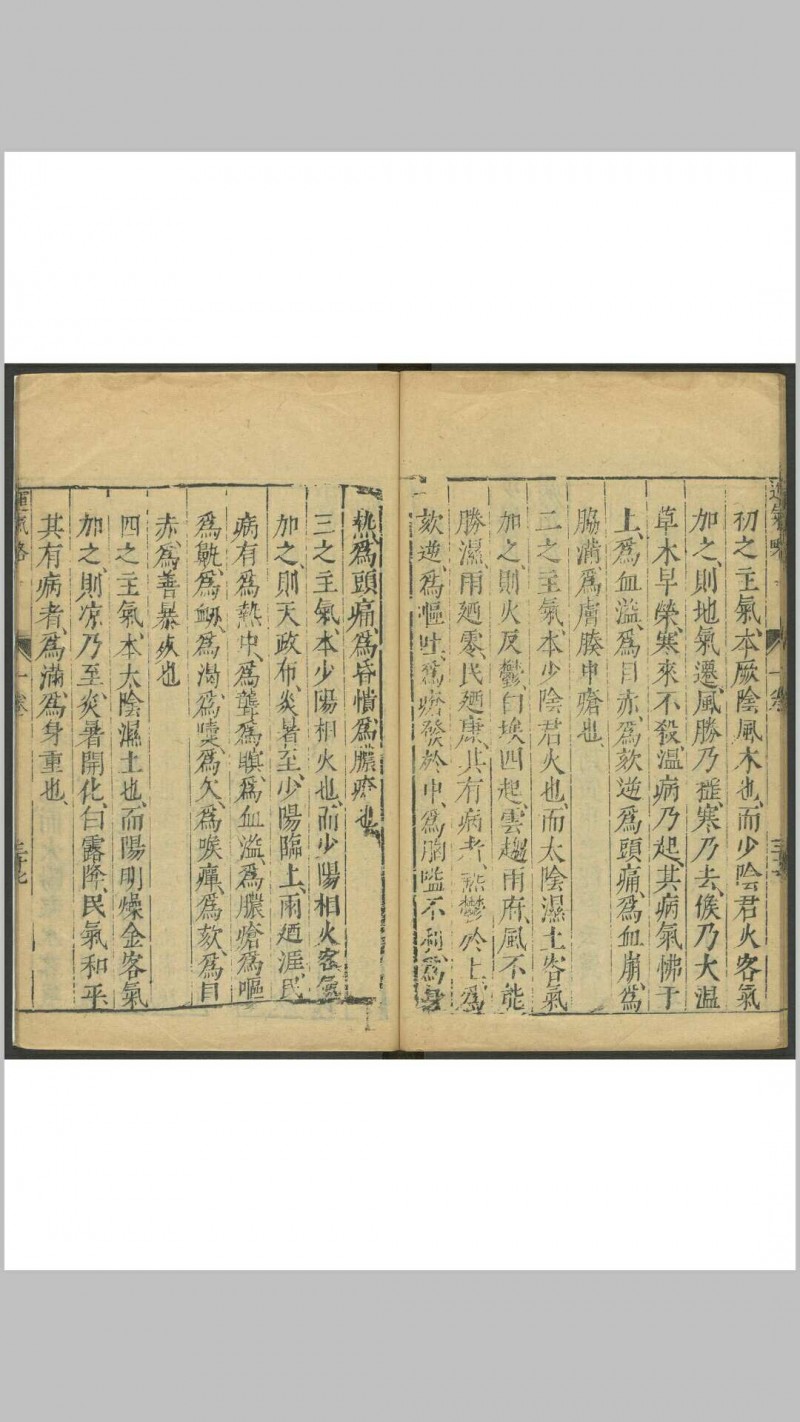 初之主氣、本厥陰風木也、而少陰君火客氣
加之、則地氣遷、風勝乃摇、寒乃去、候乃大温
草木早榮、寒來不殺、温病乃起、其病氣怫于
上、爲血溢、爲目赤、爲欬逆、爲頭痛、爲血崩、爲
脇滿、爲膚腠中瘡也
二之主氣、本少陰君火也、而太陰濕土客氣
加之、則火反鬱、白埃四起、雲趨雨府、風不能
勝濕、雨廼零、民廼康、其有病者、熱鬱於上、爲
欬逆、爲嘔吐、爲瘡發於中、爲胸嗌不利、爲身
熱、爲頭痛、爲昏憒、爲膿瘡也
三之主氣、本少陽相火也、而少陽相火客氣
加之、則天政布、炎暑至、少陽臨上、雨廼涯、民
病有爲熱中、爲聾、爲瞑、爲血溢、爲膿瘡、爲嘔
爲鼽、爲衂、爲渴、爲嚏、爲欠、爲喉痺、爲欬、爲目
赤、爲善暴死也
四之主氣、本太陰濕土也、而陽明燥金客氣
加之、則凉乃至、炎暑開化、白露降、民氣和平
其有病者、爲滿、爲身重也、
運氣略
一卷
三十七